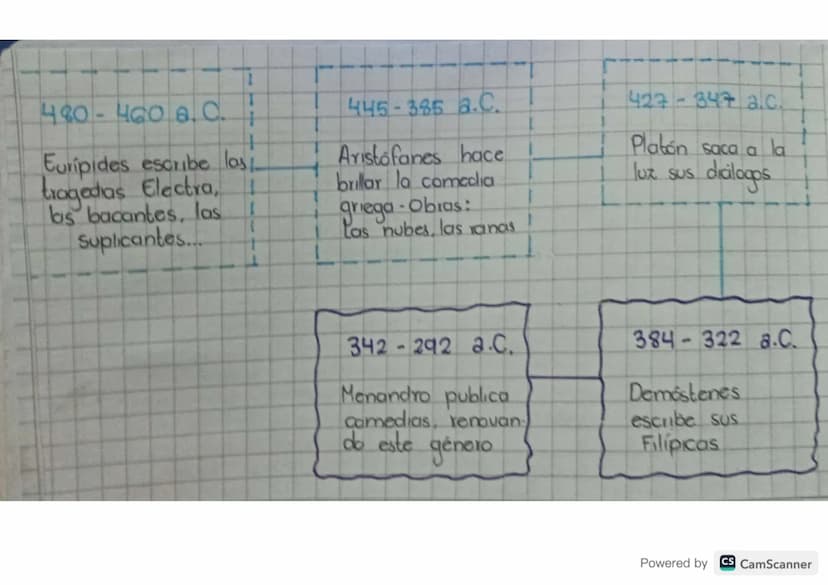 480 - 460 a.C.
Eurípides escribe las
tragedias Electra,
las bacantes, las
suplicantes...
445 - 385 a.C.
Aristófanes hace
brillar la comedia
griega. Obras:
Las nubes, las ranas
427 - 347 a.C.
Platón saca a la
luz sus diálogos
384 - 322 a.C.
Demóstenes
escribe sus
Filípicas
342 - 292 a.C.
Menandro publica
comedias, renovan-
do este género
Powered by CS CamScanner